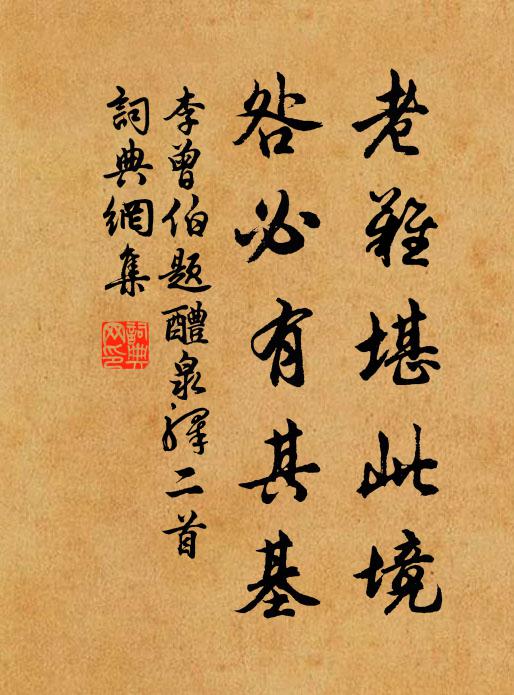 老難堪此境
咎必有其基
李曾伯題醴泉驛二首
詞典網集
詞典
网印